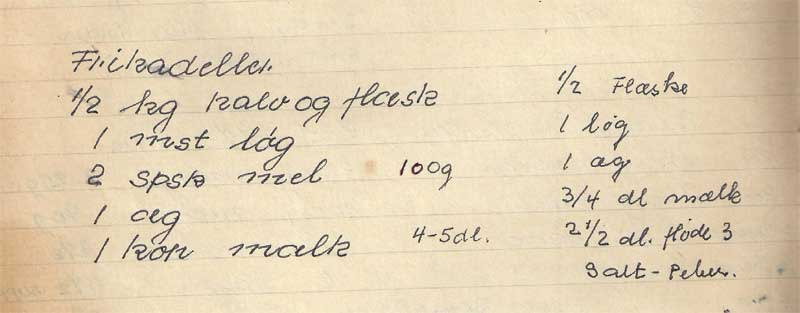 Frikadeller.
1/2 kg kalv og flæsk
1 mst løg
2 spsk mel 100g
1 æg
1 kop mælk 4-5dl.
1/2 Flæske
1 løg
1 æg
3/4 dl mælk
2 1/2 dl. fløde 3
Salt - Peber.